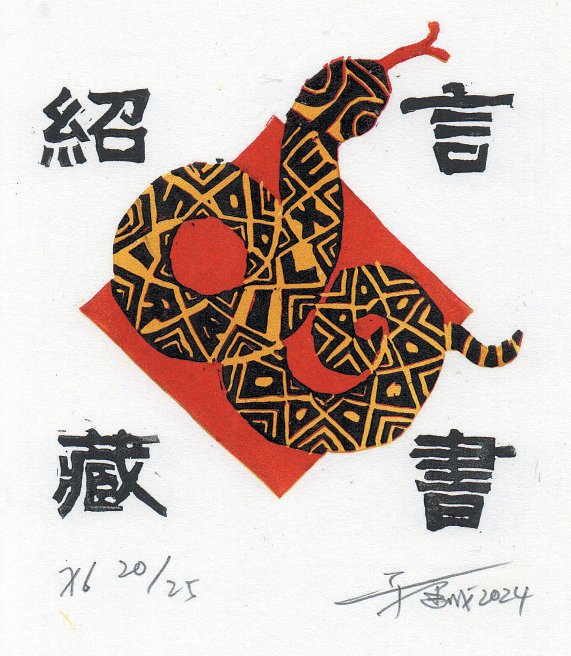 紹言
藏書
X6 20/25
2024